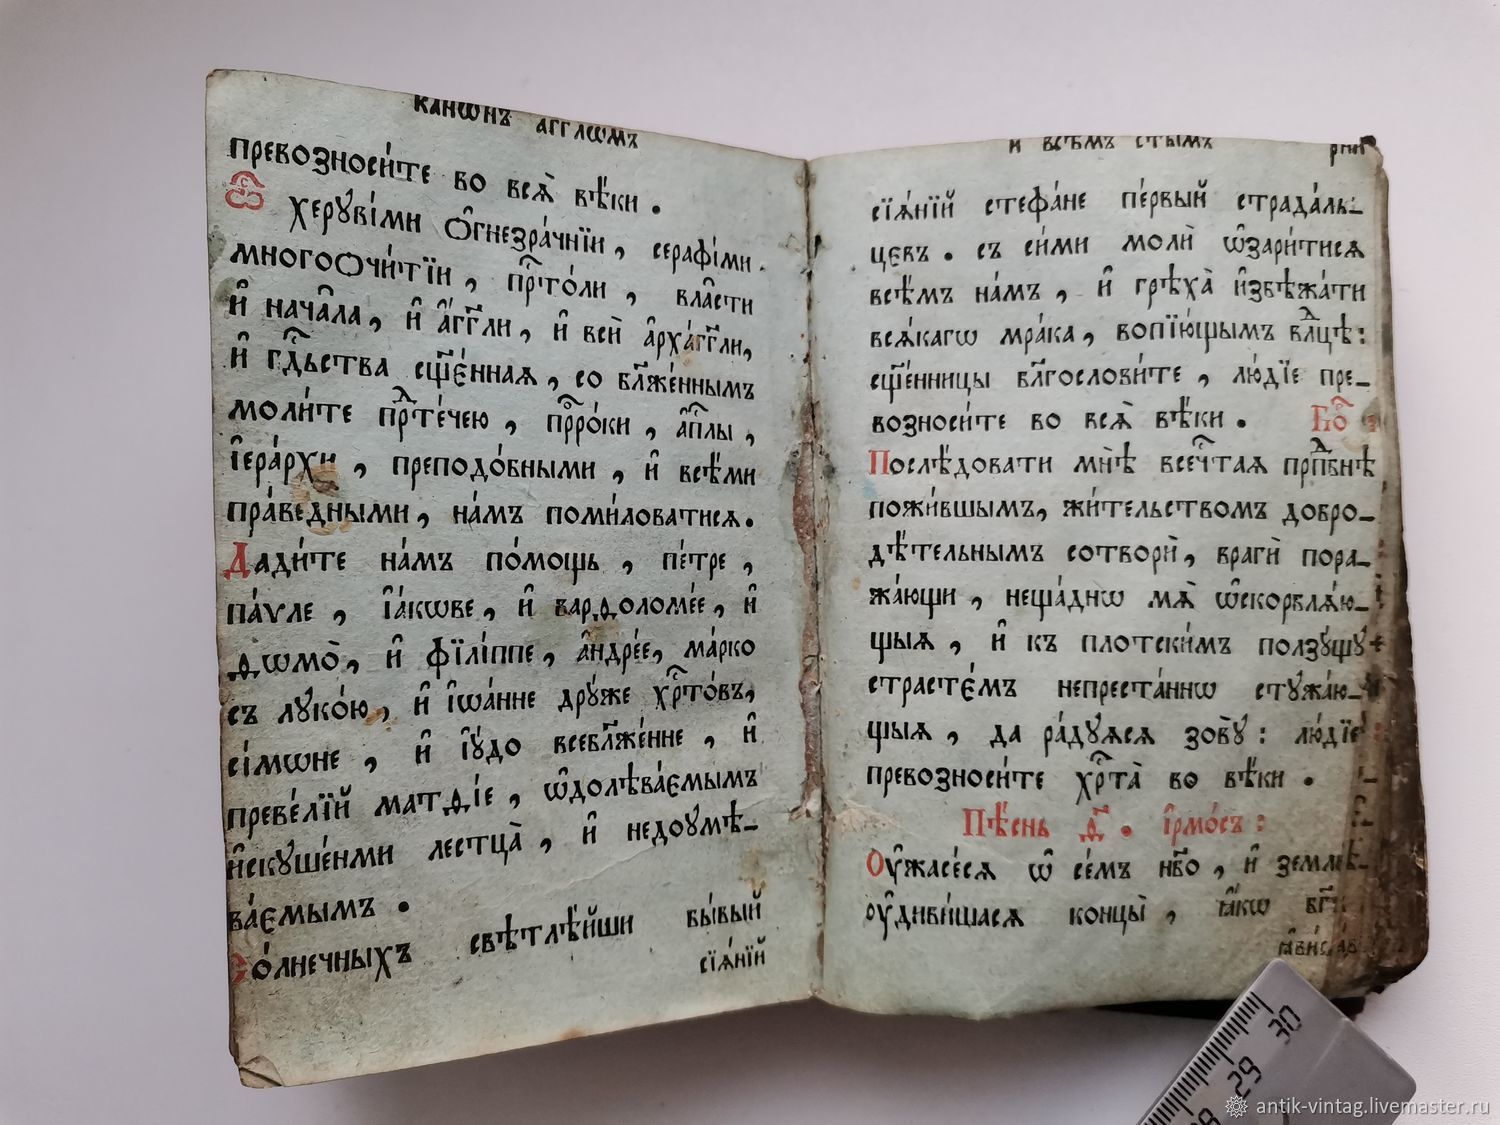 канѡнъ агг҃лѡмъ
превозноси́те во всѧ̀ вѣ́ки .
Ѿ херꙋві́ми ѻ҆гнезра́чнїи , серафі́ми
многоѻчи́тїи , прⷭ҇то́ли , вла̑сти
и҆ нача̑ла , и҆ а҆́гг҃ли , и҆ всѝ а҆рха́гг҃ли,
и҆ гдⷭ҇ьства сщ҃є́нная , со бл҃же́ннымъ
моли́те прⷣте́чею , прⷪ҇ро́ки , а҆пⷭ҇лы ,
і҆ера́рхи , преподо́бными , и҆ всѣ́ми
пра́ведными , на́мъ поми́ловатисѧ .
Дади́те на́мъ по́мощь , пе́тре ,
па́ѵле , і҆а́кѡве , и҆ варѳоломе́е , и҆
ѳѡмо̀ , и҆ фїлі́ппе , а҆ндре́е , ма́рко
съ лꙋко́ю , и҆ і҆ѡа́нне дрꙋ́же хрⷭ҇то́въ ,
сі́мѡне , и҆ і҆ꙋ́до всебл҃же́нне , и҆
преве́лїй матѳі́е , ѡ҆долѣва́ємымъ
и҆скꙋше́нми лестца̀ , и҆ недоꙋмѣ-
ва́ємымъ .
Со́лнечныхъ свѣтлѣ́йши бы́вый
сїѧ́нїй
и всѣмъ ст҃ымъ
сїѧ́нїй стефа́не пе́рвый страда́ль-
цевъ . съ си́ми молѝ ѡ҆зари́тисѧ
всѣ́мъ на́мъ , и҆ грѣха̀ и҆збѣжа́ти
всѧ́кагѡ мра́ка , вопїю́щымъ влⷣцѣ :
сщ҃є́нницы блг҃ослови́те , лю́дїе пре-
возноси́те во всѧ̀ вѣ́ки . Бо҃
Послѣ́довати мнѣ̀ всечⷭ҇таѧ прпⷣбнѣ
пожи́вшымъ, жи́тельствомъ добро-
дѣ́тельнымъ сотворѝ, врагѝ пора-
жа́ющи , неща́днѡ мѧ̀ ѡ҆скорблѧ́ю-
щыѧ , и҆ къ пло́тскимъ ползꙋ́щꙋ
страсте́мъ непреста́ннѡ стꙋжа́ю-
щыѧ , да ра́дꙋѧсѧ зовꙋ̀ : лю́дїе
превозноси́те хрⷭ҇та̀ во вѣ́ки .
Пѣ́снь ѳ҃ . і҆рмо́съ :
Оу҆жасе́сѧ ѡ҆ се́мъ нб҃о , и҆ землѝ
оу҆диви́шасѧ концы̀ , ꙗ҆́кѡ